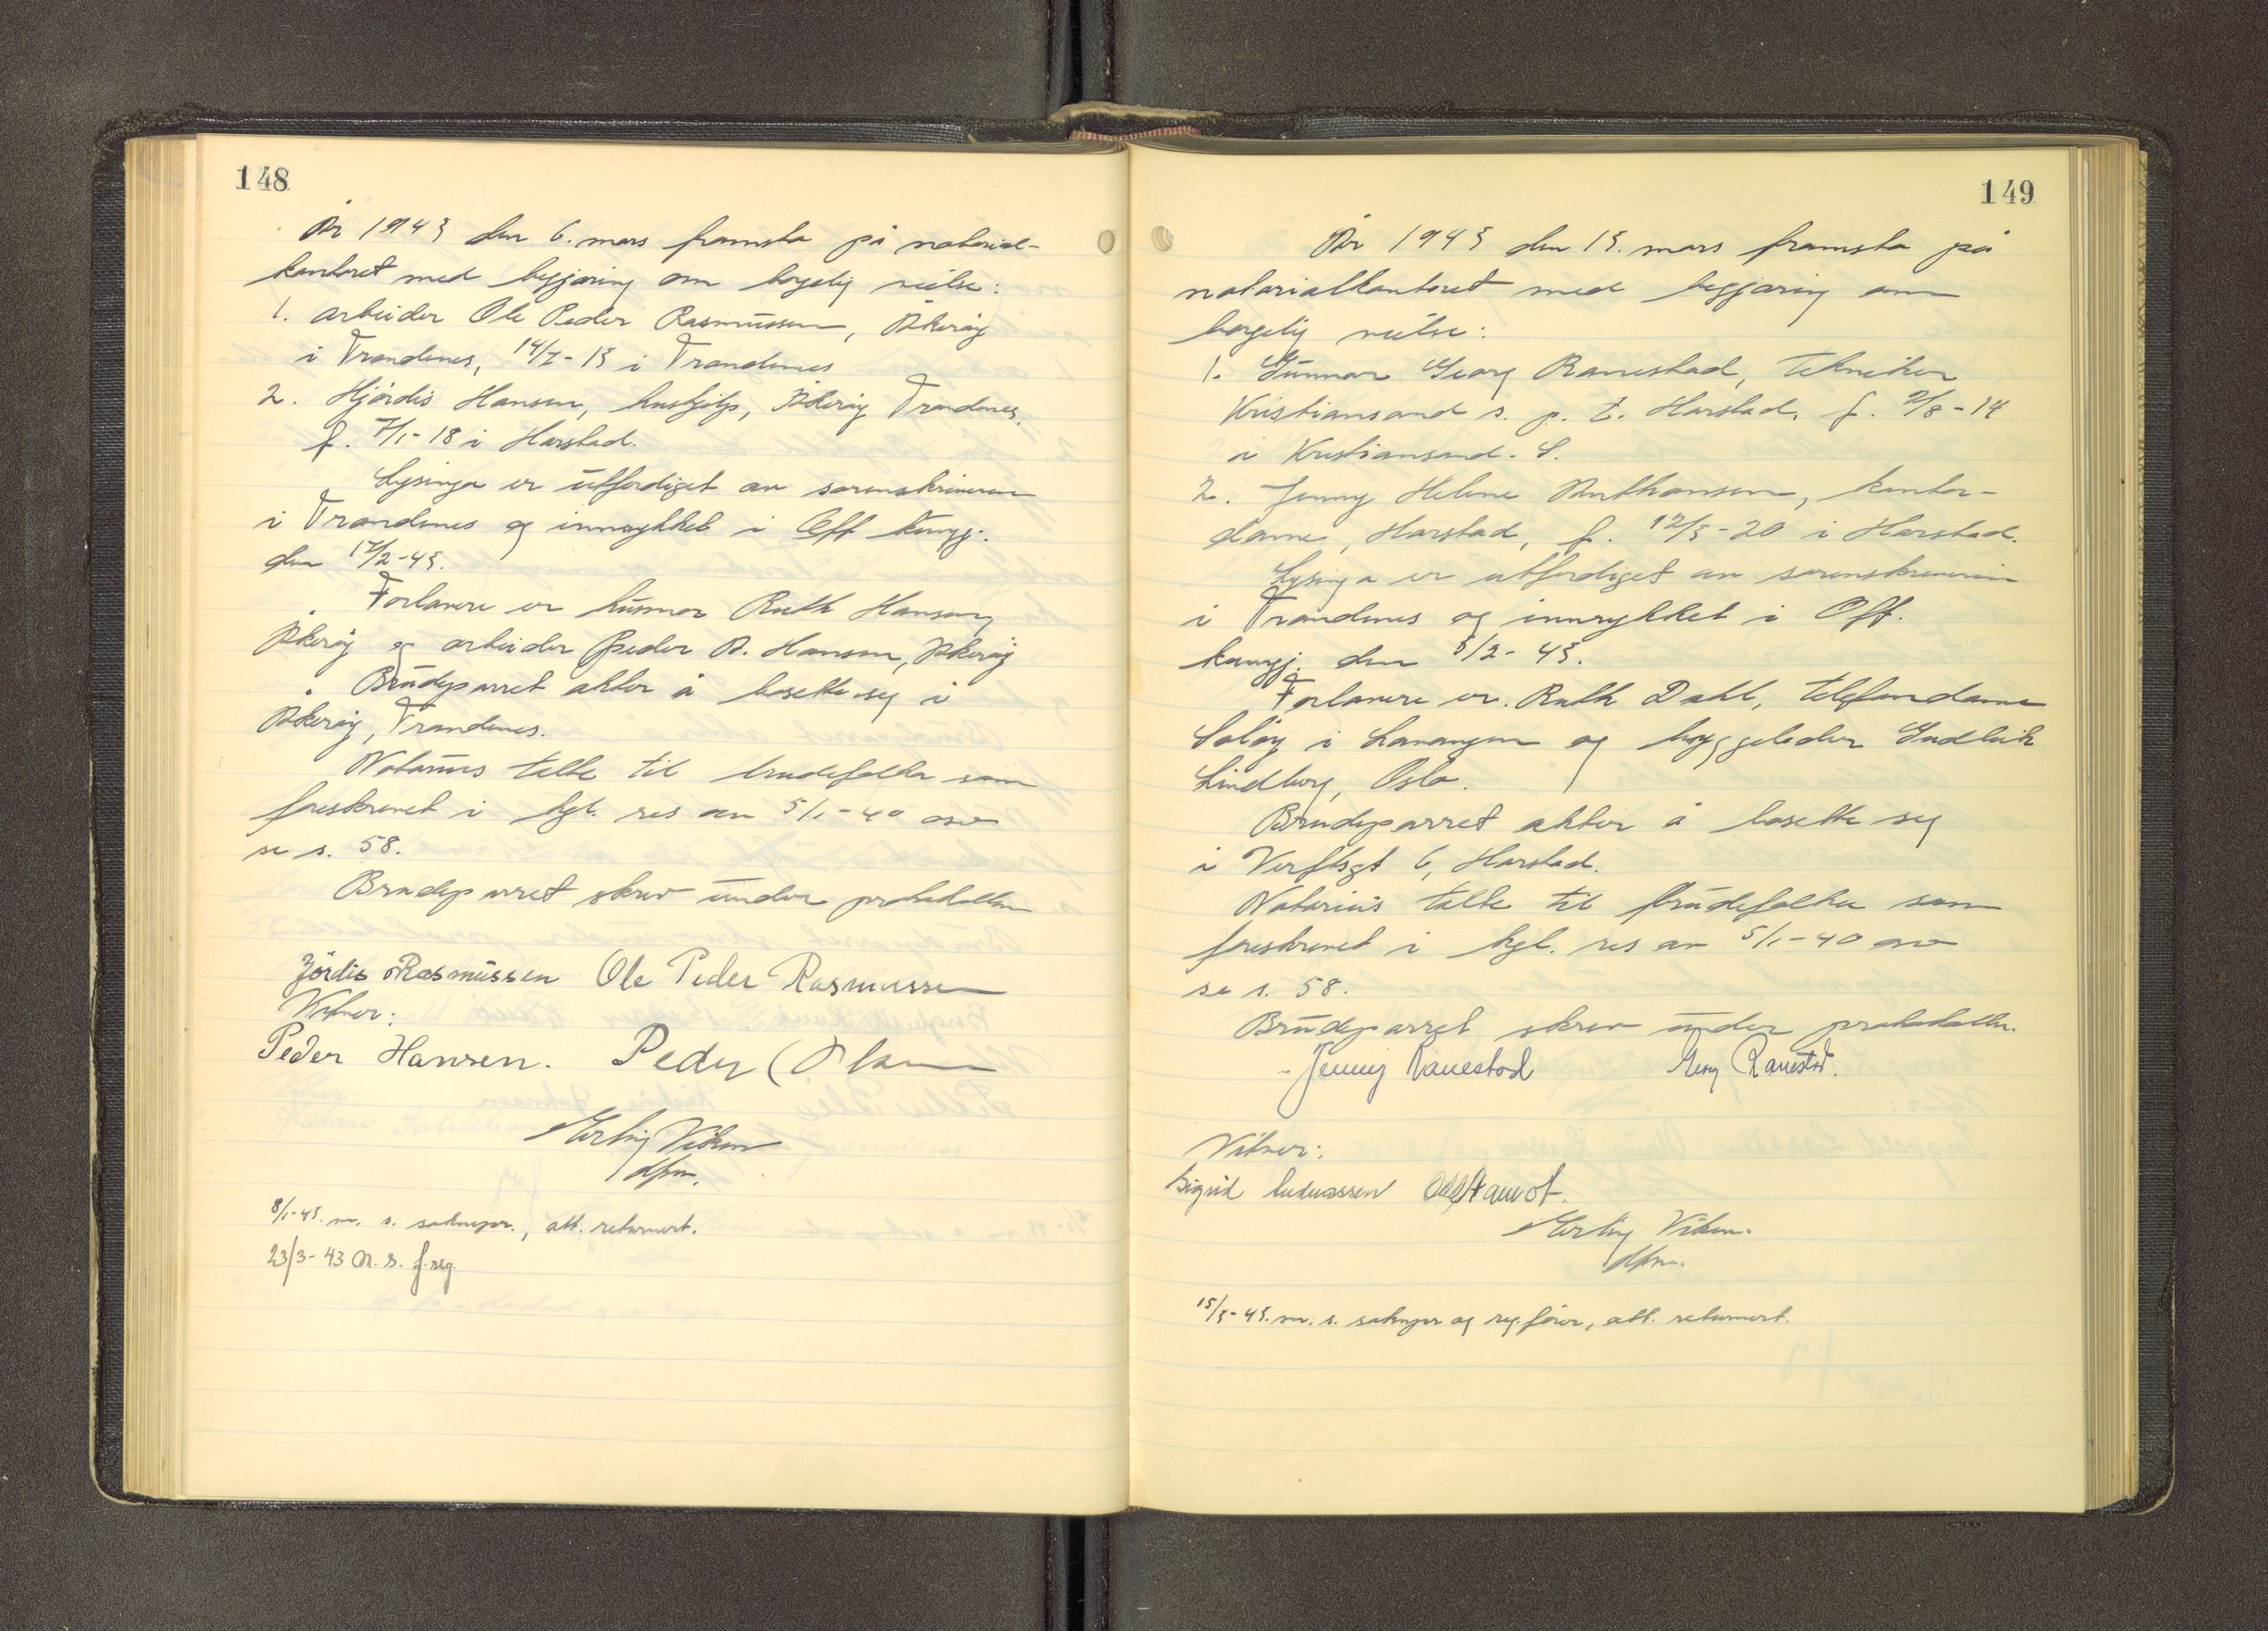 148
År 1943 den 6. mars framsto på notarial-
kontoret med begjæring om borgelig vielse:
1. arbeider Ole Peder Rasmussen, Åkerøy
i Trondenes, 14/7-13 i Trondenes
2. Hjørdis Hansen, hushjelp, Åkerøy Trondenes,
f. 7/1-18 i Harstad.
Lysinga er utferdiget av sorenskriveren
i Trondenes og innrykket i Off kunngj.
den 17/2-43.
Forlovere er husmor Ruth Hansen,
Åkerøy og arbeider Peder A. Hansen, Åkerøy
Brudeparret akter å bosette seg i
Åkerøy, Trondenes.
Notarius talte til brudefolka som
foreskrevet i kgl. res av 5/1-40 osv
se s. 58.
Brudeparret skrev under protokollen
Jördis Rasmussen Ole Peder Rasmussen
Vitner:
Peder Hansen. Peder
Erling Viken
dfm.
8/3-43. m. s. soknepr., att. returnert.
23/3-43 m. s. f. reg.
149
År 1943 den 13. mars framsto på
notarialkontoret med begjæring om
borgelig vielse:
1. Gunnar Georg Ranestad, tekniker
Kristiansand s. p. t. Harstad, f. 2/8-14
i Kristiansand. S.
2. Jenny Helene Anthonsen, kontor-
dame, Harstad, f. 12/3-20 i Harstad.
Lysinga er utferdiget av sorenskriveren
i Trondenes og innrykket i Off.
kunngj. den 3/2-43.
Forlovere er. Ruth Dahl, telefondame
Soløy i Lavangen og byggeleder Gudleik
Lindborg, Oslo.
Brudeparret akter å bosette seg
i Verftsgt 6, Harstad.
Notarius talte til brudefolka som
foreskrevet i kgl. res av 5/1-40 osv
se s. 58.
Brudeparret skrev under protokollen.
Jenny Ranestad Georg Ranestad.
Vitner:
Sigrid
Erling Viken.
dfm.
15/3-43. m. s. sokneprest og reg. fører, att. returnert.